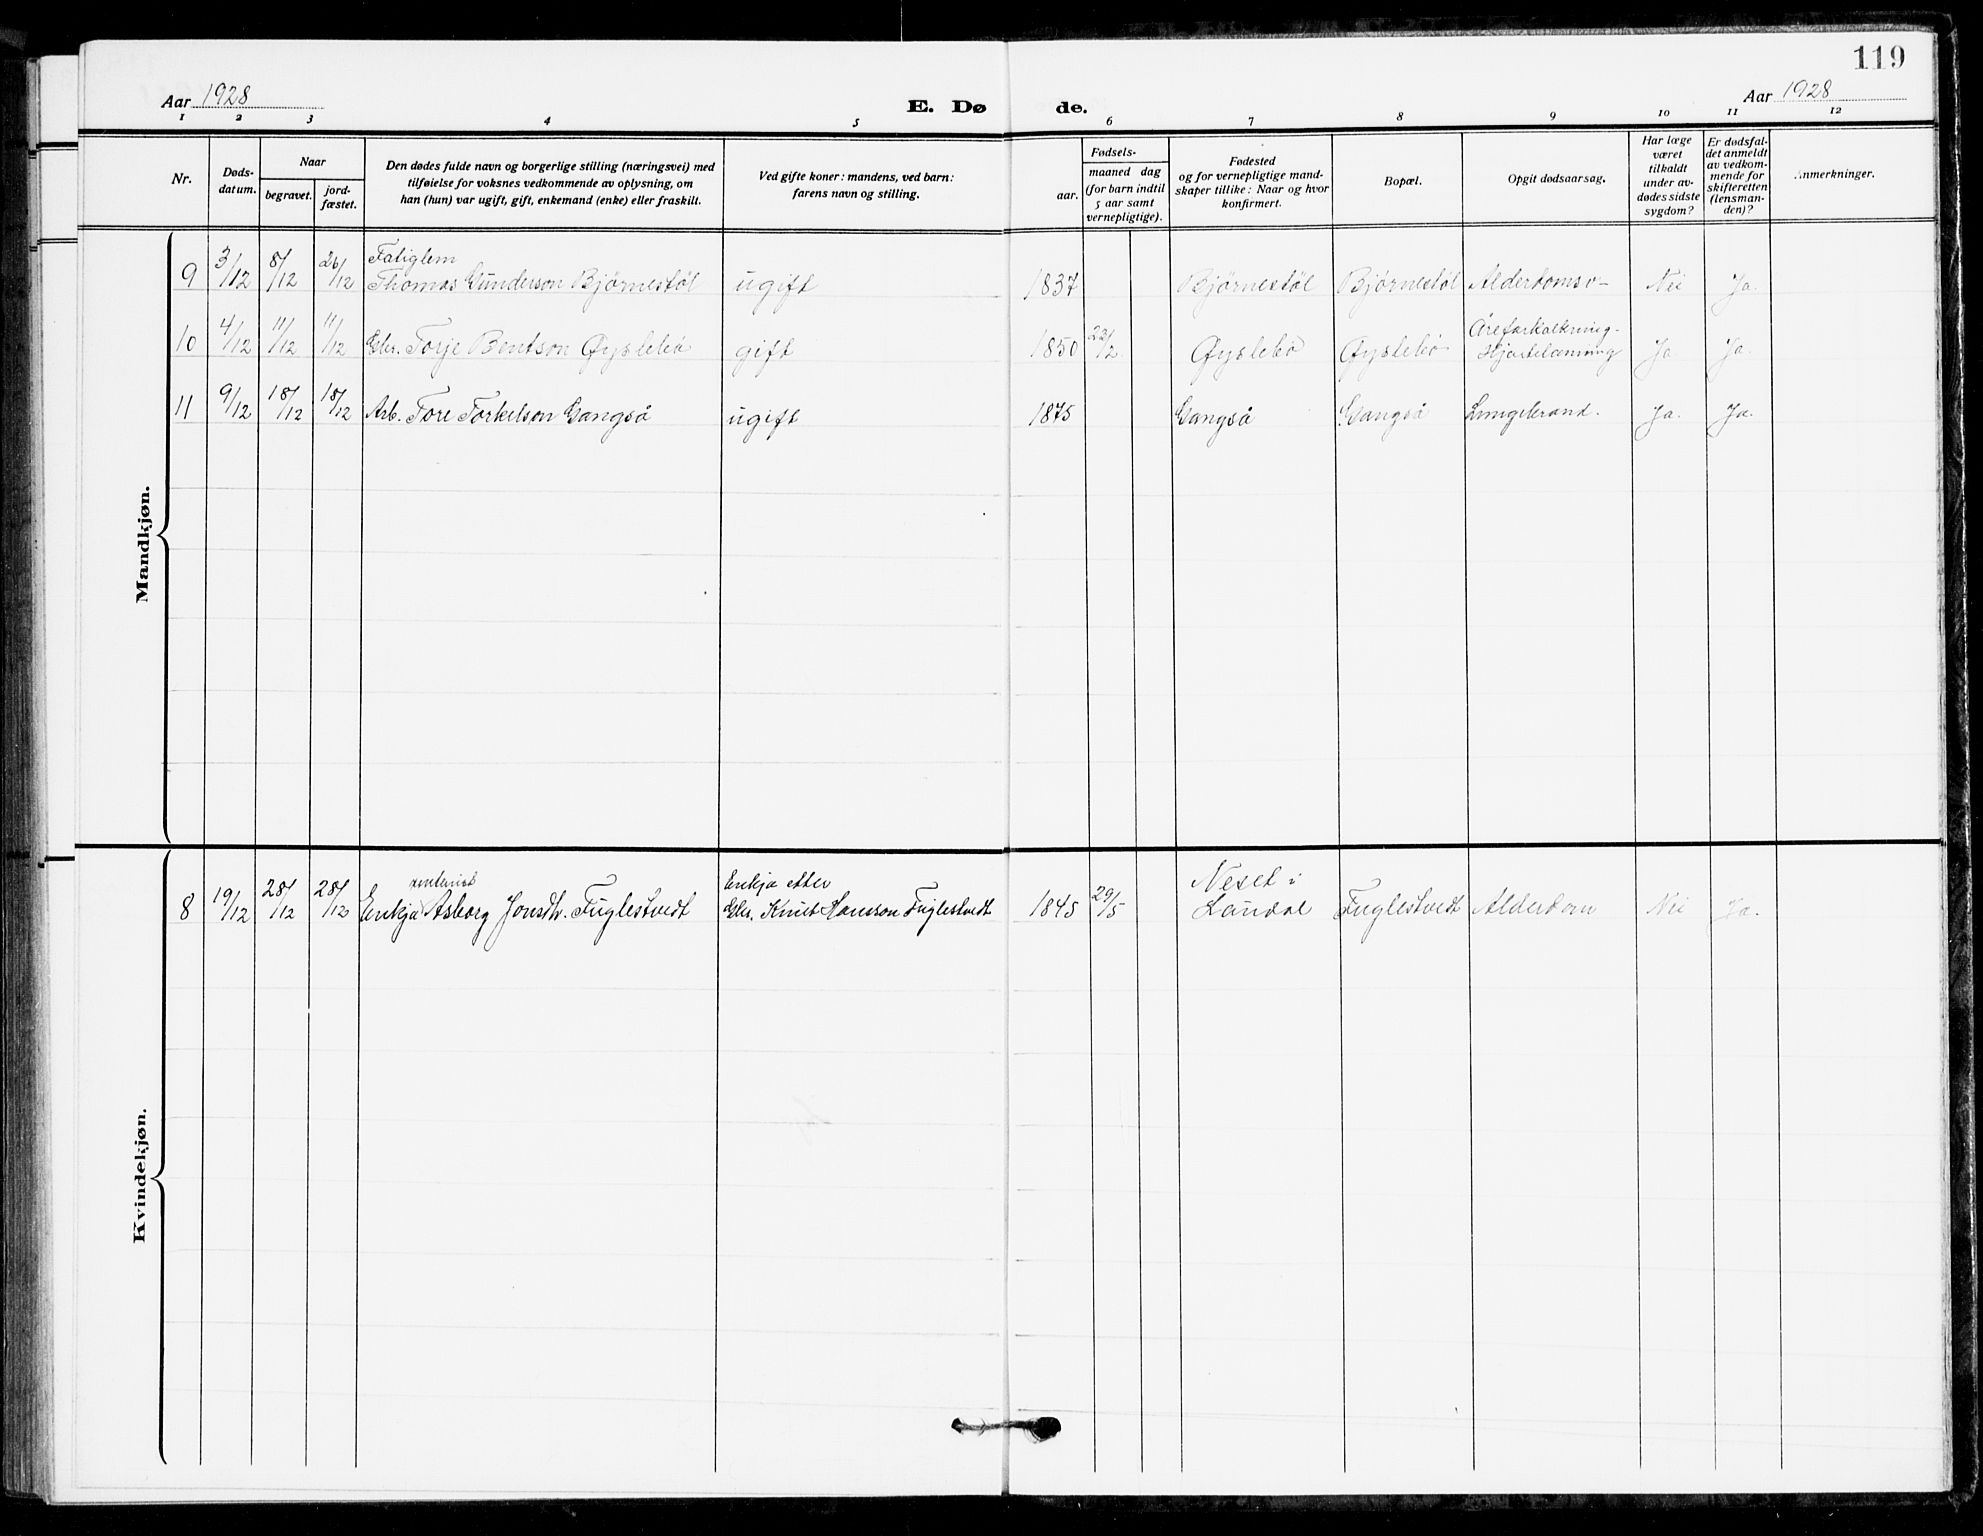 119
Aar 1928
E. Dø
de.
Aar 1928
1 2 3 4 5 6 7 8 9 10 11 12
Nr.
Døds-
datum.
Naar
begravet.
jord-
fæstet.
Den dødes fulde navn og borgerlige stilling (næringsvei) med
tilføielse for voksnes vedkommende av oplysning, om
han (hun) var ugift, gift, enkemand (enke) eller fraskilt.
Ved gifte koner: mandens, ved barn:
farens navn og stilling.
aar.
Fødsels-
maaned dag
(for barn indtil
5 aar samt
vernepligtige).
Fødested
og for vernepligtige mand-
skaper tillike: Naar og hvor
konfirmert.
Bopæl.
Opgit dødsaarsag.
Har læge
været
tilkaldt
under av-
dødes sidste
sygdom?
Er dødsfal-
det anmeldt
av vedkom-
mende for
skifteretten
(lensman-
den)?
Anmerkninger.
Mandkjøn.
Fatiglem
9 3/12 8/12 26/12 Thomas Gunderson Bjørnestøl ugift 1837 Bjørnestøl Bjørnestøl Alderdomsv- Nei Ja.
Åreforkalkning-
10 4/12 11/12 11/12 Gbr. Torje Bentson Øyslebø gift 1850 23/2 Øyslebø Øyslebø Hjartelamning Ja Ja.
11 9/12 18/12 18/12 Arb. Tore Torkelson Gangså ugift 1875 Gangså Gangså Lungebrand. Ja. Ja.
Kvindekjøn.
Enkja etter Neset i
8 19/12 28/12 28/12 Enkja Asborg Jonsdtr. Fuglestvedt Gbr. Knut Hansson Fuglestvedt 1845 29/5 Laudal Fuglestvedt Alderdom Nei Ja.